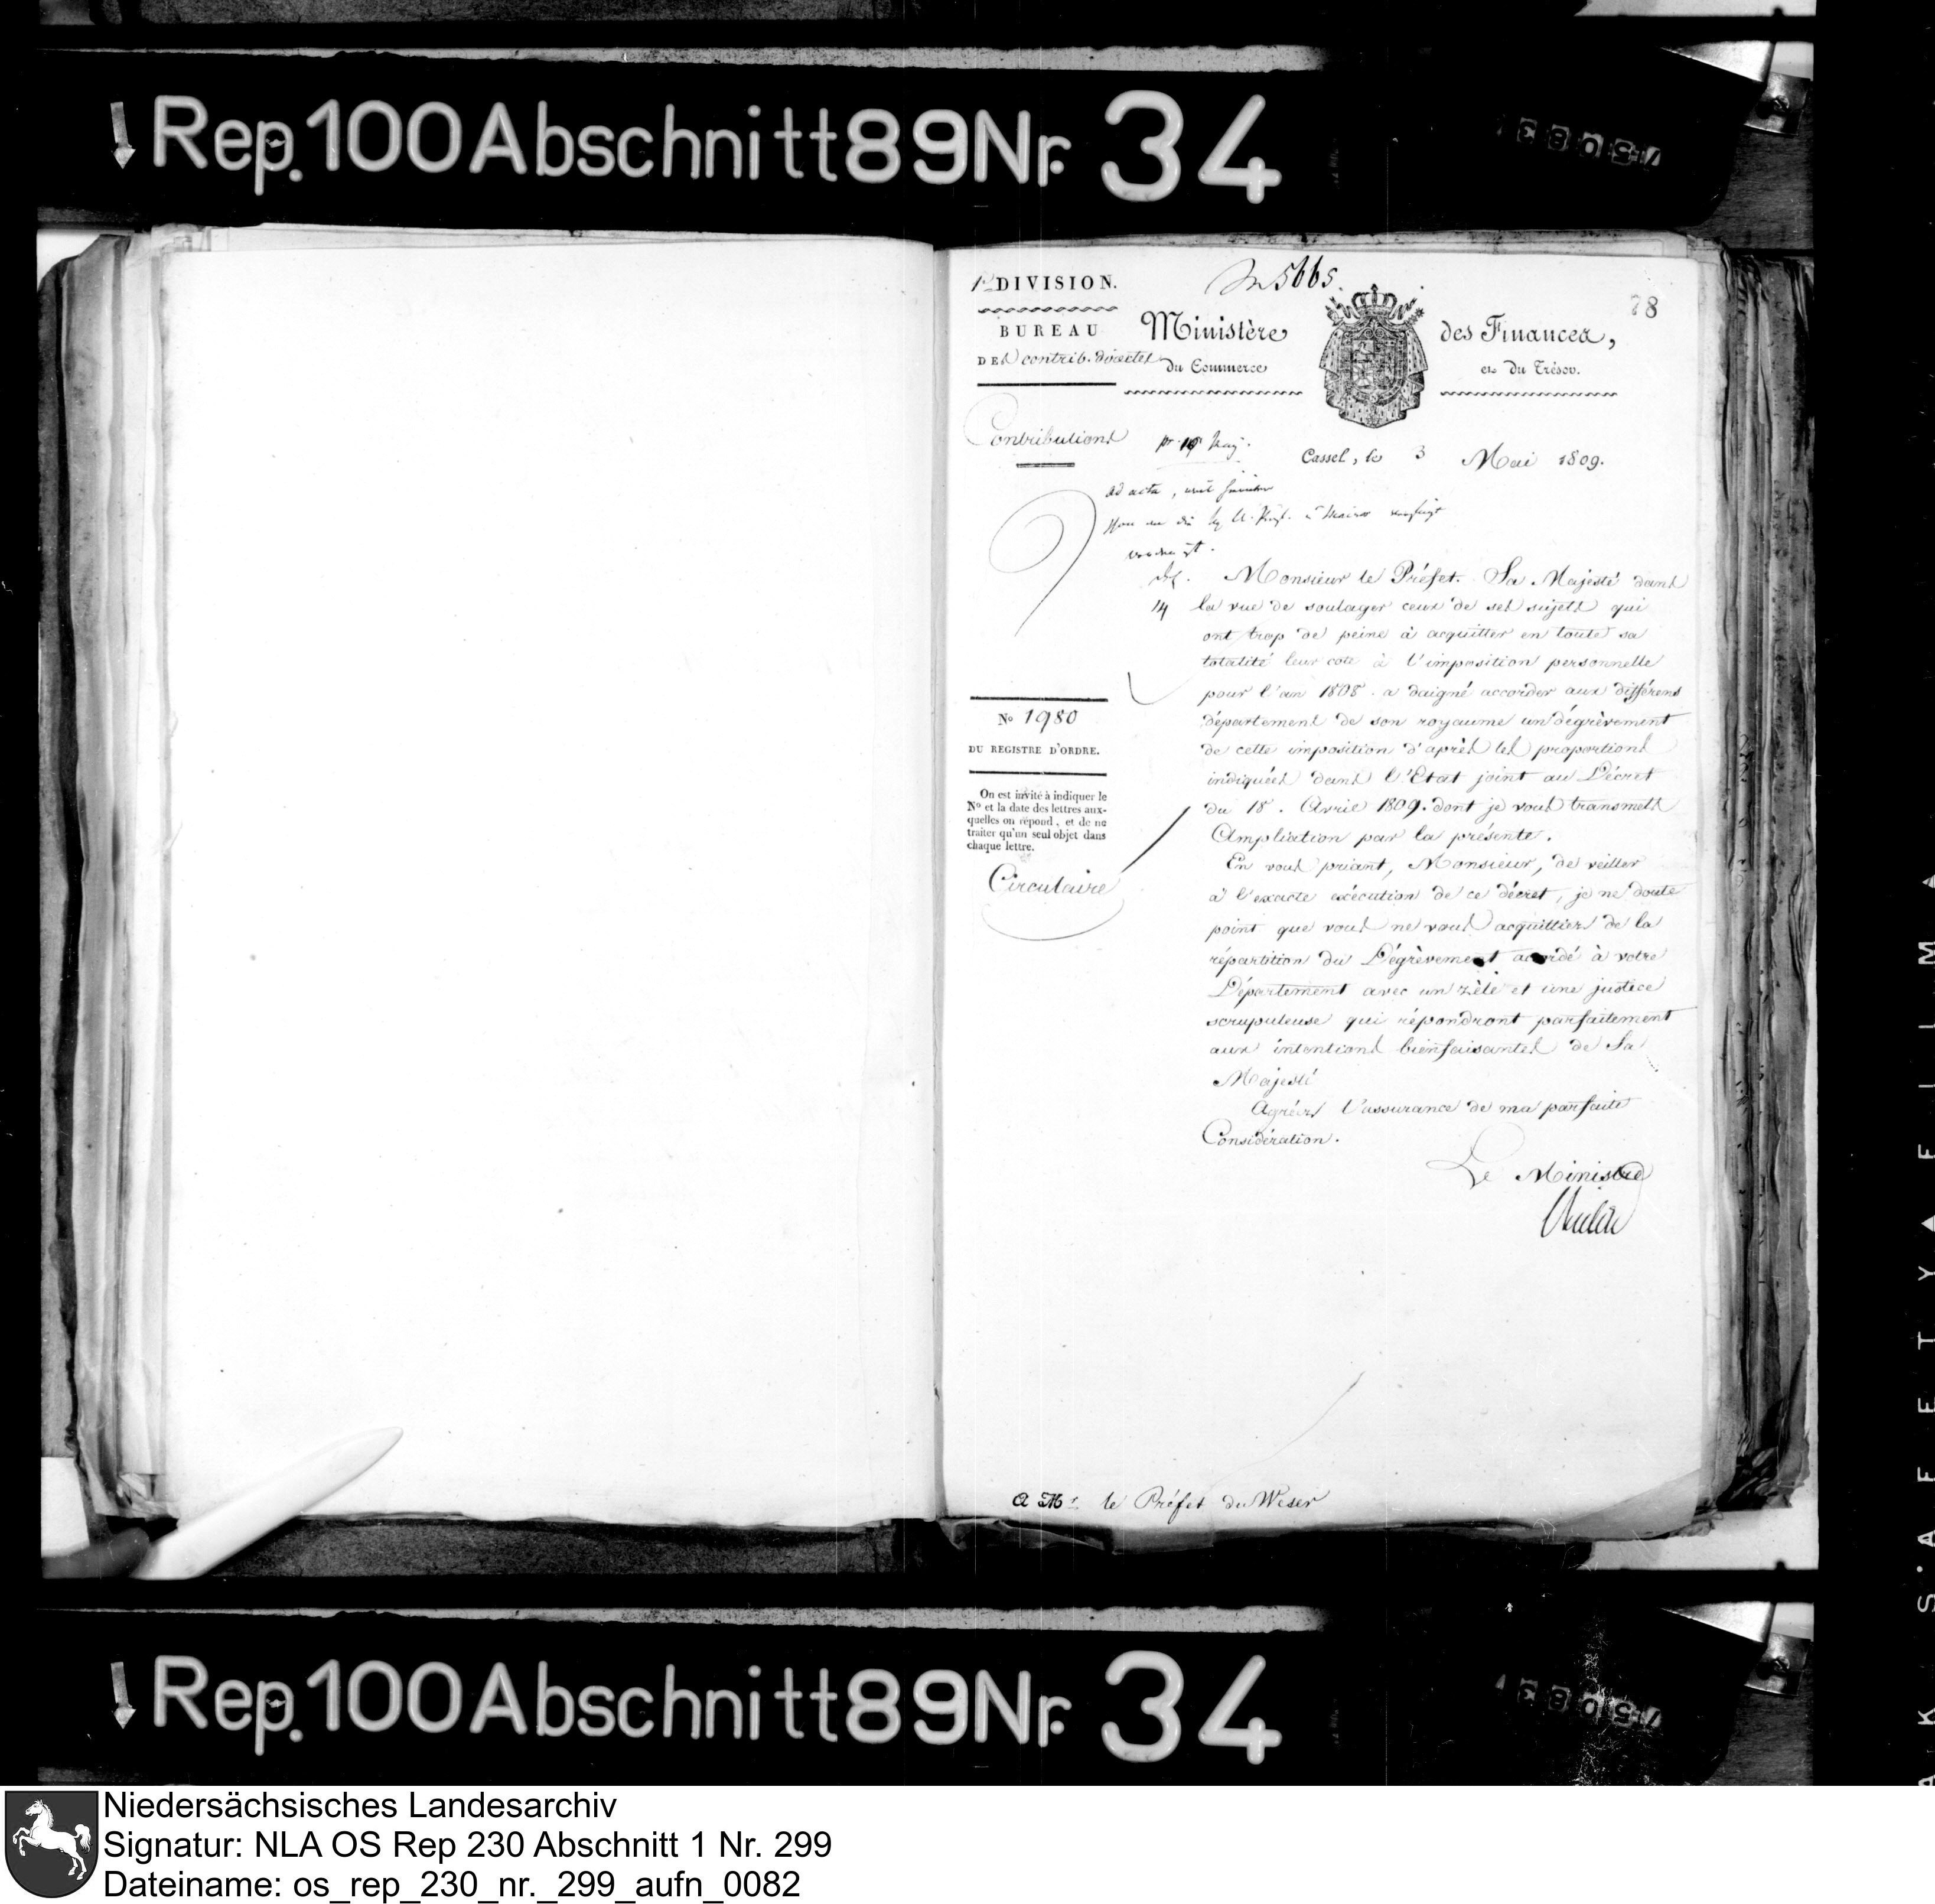 Rep. 100 Abschnitt 89 Nr. 34
1re DIVISION.
5665.
88
BUREAU
DES contrib. directes
Ministère des Finances,
du Commerce et du Trésor.
Contributions
Cassel, le 3 Mai 1809.
ad acta,
14
Monsieur le Préfet. Sa Majesté dans
la vue de soulager ceux de ses sujets qui
ont trop de peine à acquitter en toute sa
totalité leur cote à l'imposition personnelle
pour l'an 1808. a daigné accorder aux différens
départemens de son royaume un dégrèvement
de cette imposition d'après les proportions
indiquées dans l'Etat joint au Décret
du 18. Avril 1809. dont je vous transmets
Ampliation par la présente.
En vous priant, Monsieur, de veiller
à l'exacte exécution de ce décret, je ne doute
point que vous ne vous acquittiez de la
répartition du Dégrèvement accordé à votre
Département avec un zèle et une justice
scrupuleuse qui répondront parfaitement
aux intentions bienfaisantes de Sa
Majesté
Agréez l'assurance de ma parfaite
Considération.
Le Ministre
No 1980
DU REGISTRE D'ORDRE.
On est invité à indiquer le
No et la date des lettres aux-
quelles on répond, et de ne
traiter qu'un seul objet dans
chaque lettre.
Circulaire
A Mr. le Préfet du Weser
Rep. 100 Abschnitt 89 Nr. 34
Niedersächsisches Landesarchiv
Signatur: NLA OS Rep 230 Abschnitt 1 Nr. 299
Dateiname: os_rep_230_nr._299_aufn_0082